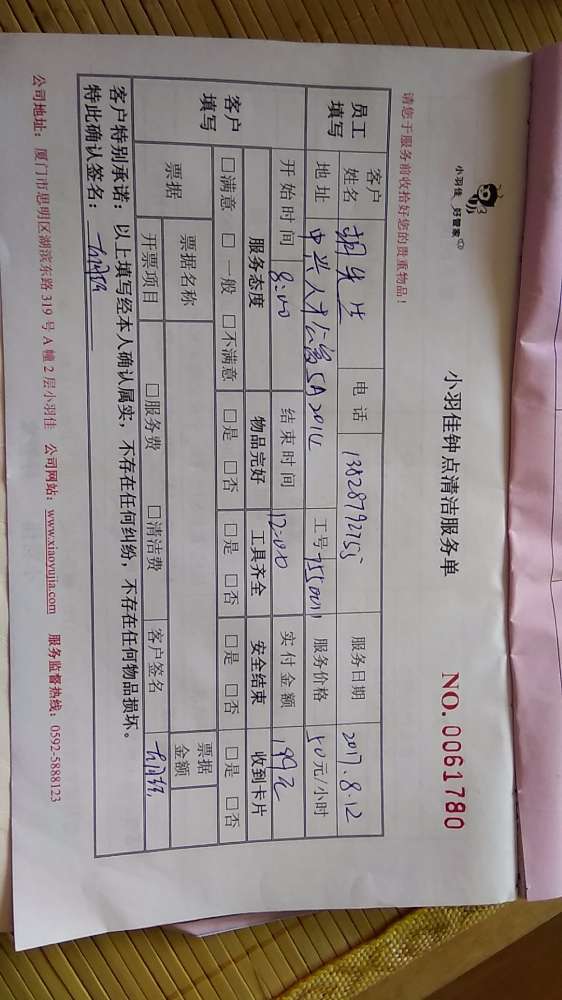 小羽佳 好管家
小羽佳钟点清洁服务单
NO. 0061780
请您于服务前收拾好您的贵重物品！
员工填写
客户姓名 胡先生 电话 13828792755 服务日期 2017.8.12
地址 中兴人才公寓5A201C 工号 服务价格 50元/小时
开始时间 8:00 结束时间 12:00 实付金额 199元
客户填写
服务态度 物品完好 工具齐全 安全结束 收到卡片
□满意 □一般 □不满意 □是 □否 □是 □否 □是 □否 □是 □否
票据 票据名称 票据金额
开票项目 □服务费 □清洁费 客户签名
客户特别承诺：以上填写经本人确认属实，不存在任何纠纷，不存在任何物品损坏。
特此确认签名：
公司地址：厦门市思明区湖滨东路319号A幢2层小羽佳 公司网站：www.xiaoyujia.com 服务监督热线：0592-5888123